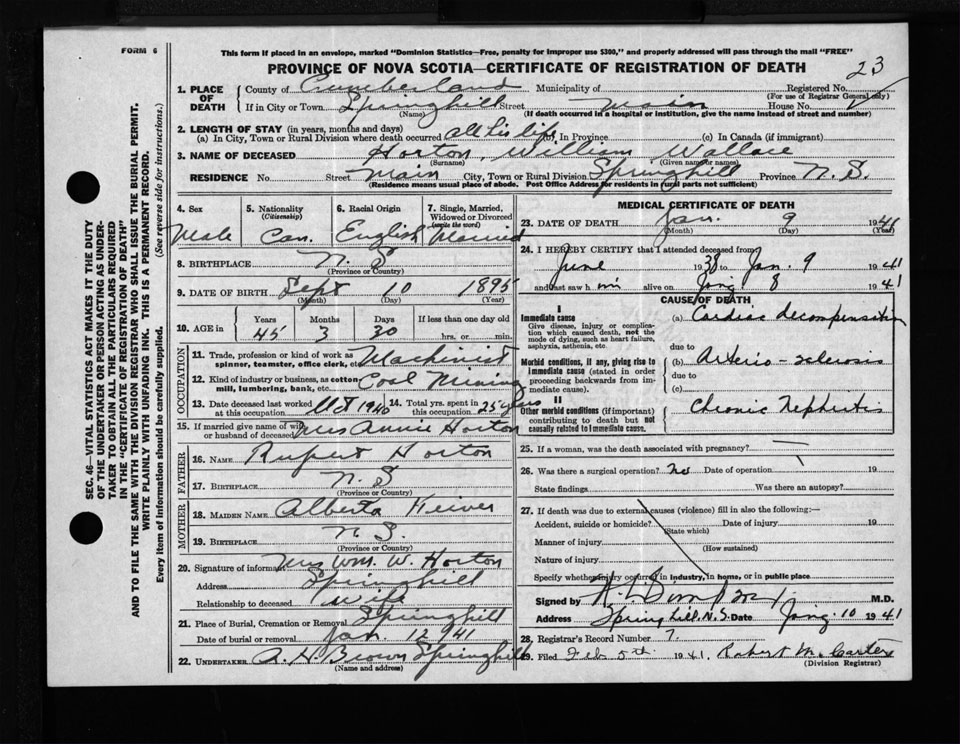 FORM 6
This form if placed in an envelope, marked "Dominion Statistics—Free, penalty for improper use $300," and properly addressed will pass through the mail "FREE"
PROVINCE OF NOVA SCOTIA—CERTIFICATE OF REGISTRATION OF DEATH
23
SEC. 46—VITAL STATISTICS ACT MAKES IT THE DUTY
OF THE UNDERTAKER OR PERSON ACTING AS UNDER-
TAKER TO OBTAIN ALL THE PARTICULARS REQUIRED
IN THE "CERTIFICATE OF REGISTRATION OF DEATH"
AND TO FILE THE SAME WITH THE DIVISION REGISTRAR WHO SHALL ISSUE THE BURIAL PERMIT.
WRITE PLAINLY WITH UNFADING INK. THIS IS A PERMANENT RECORD.
Every item of Information should be carefully supplied. (See reverse side for instructions.)
1. PLACE OF DEATH
County of Cumberland Municipality of Registered No.
(For use of Registrar General only)
If in City or Town Springhill Street Main House No.
(Name) (If death occurred in a hospital or institution, give the name instead of street and number)
2. LENGTH OF STAY (in years, months and days)
(a) In City, Town or Rural Division where death occurred all his life In Province (c) In Canada (if immigrant)
3. NAME OF DECEASED Horton, William Wallace
(Surname) (Given name or names)
RESIDENCE No. Street Main City, Town or Rural Division Springhill Province N.S.
(Residence means usual place of abode. Post Office Address for residents in rural parts not sufficient)
4. Sex Male
5. Nationality (Citizenship) Can.
6. Racial Origin English
7. Single, Married, Widowed or Divorced (write the word) Married
8. BIRTHPLACE N.S
(Province or Country)
9. DATE OF BIRTH Sept 10 1895
(Month) (Day) (Year)
10. AGE in Years Months Days If less than one day old
45 3 30 hrs. or min.
OCCUPATION
11. Trade, profession or kind of work as spinner, teamster, office clerk, etc. Machinist
12. Kind of industry or business, as cotton mill, lumbering, bank, etc. Coal Mining
13. Date deceased last worked at this occupation Oct 1940 14. Total yrs. spent in this occupation 25 years
15. If married give name of wife or husband of deceased Mrs Annie Horton
FATHER
16. NAME Rupert Horton
17. BIRTHPLACE N.S
(Province or Country)
MOTHER
18. MAIDEN NAME Alberta
19. BIRTHPLACE N.S.
(Province or Country)
20. Signature of informant Mrs Wm. W. Horton
Address Springhill
Relationship to deceased Wife
21. Place of Burial, Cremation or Removal Springhill
Date of burial or removal Jan. 12 1941
22. UNDERTAKER A. H Brown Springhill
(Name and address)
MEDICAL CERTIFICATE OF DEATH
23. DATE OF DEATH Jan. 9 1941
(Month) (Day) (Year)
24. I HEREBY CERTIFY that I attended deceased from
June 1938 to Jan. 9 1941
and last saw him alive on Jan 8 1941
CAUSE OF DEATH
Immediate cause (a) Cardiac decompensation
Give disease, injury or complication which caused death, not the mode of dying, such as heart failure, asphyxia, asthenia, etc.
due to
Morbid conditions, if any, giving rise to immediate cause (stated in order proceeding backwards from immediate cause). (b) Arterio-sclerosis
due to
(c)
II
Other morbid conditions (if important) contributing to death but not causally related to immediate cause. Chronic Nephritis
25. If a woman, was the death associated with pregnancy?
26. Was there a surgical operation? No Date of operation 19
State findings Was there an autopsy?
27. If death was due to external causes (violence) fill in also the following:—
Accident, suicide or homicide? Date of injury 19
(State which)
Manner of injury
(How sustained)
Nature of injury
Specify whether injury occurred in industry, in home, or in public place
Signed by M.D.
Address Springhill, N.S. Date Jan. 10 1941
28. Registrar's Record Number 7.
29. Filed Feb 5th 1941. Robert M. Carter
(Division Registrar)